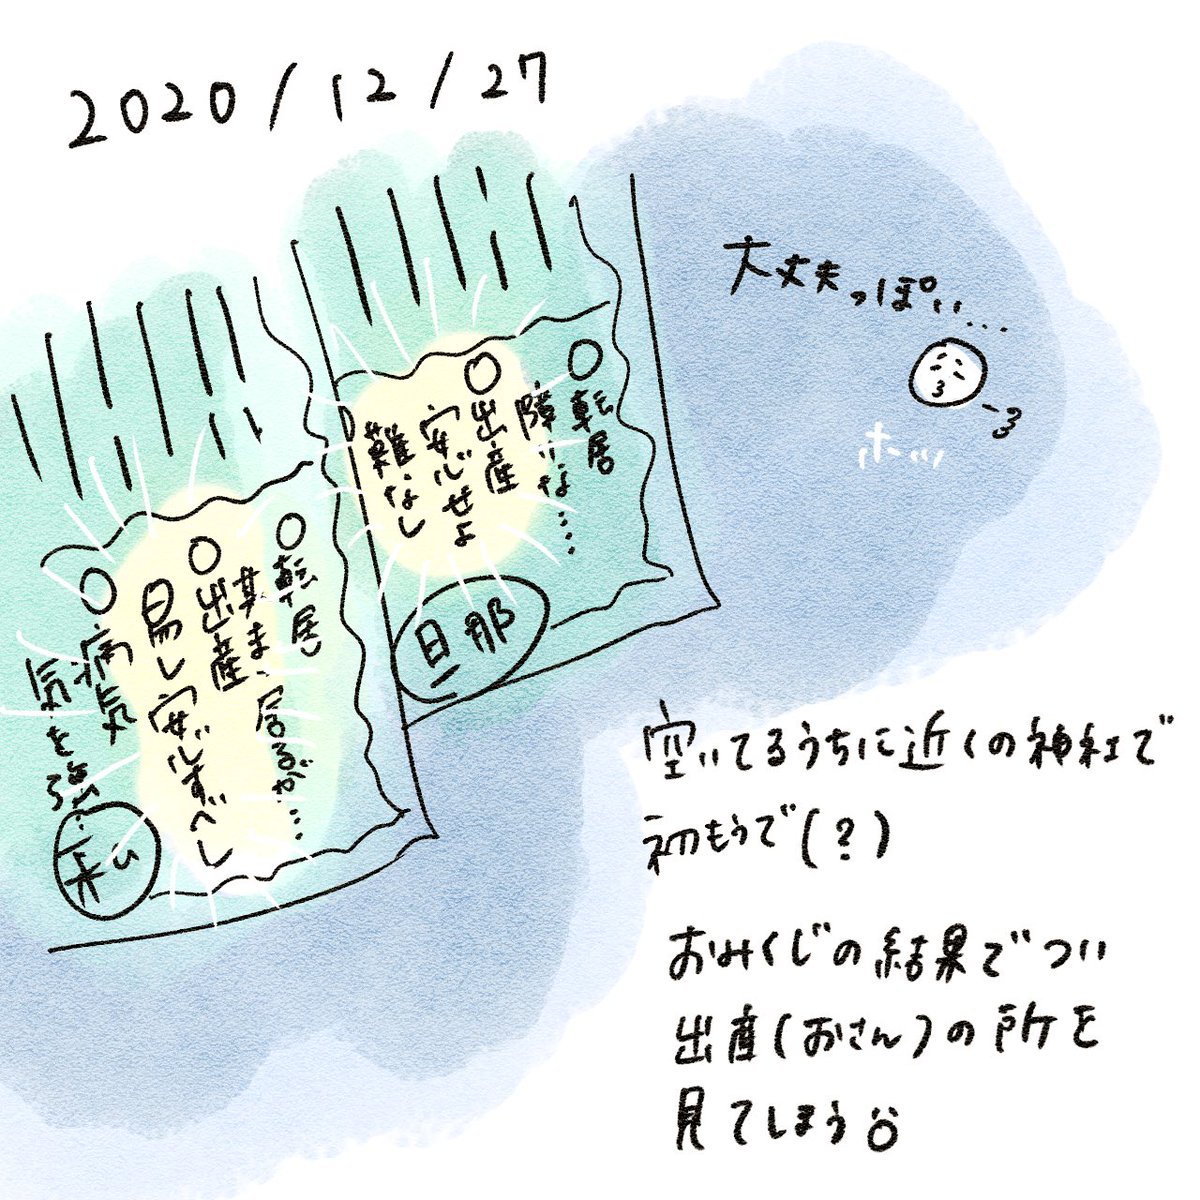 2020/12/27
大丈夫っぽい...
ホッ
○転居
障りな...
○出産
安心せよ
難なし
旦那
○転居
其まゝ居るが...
○出産
易し安心すべし
○病気
気を強...
私
空いてるうちに近くの神社で
初もうで(?)
おみくじの結果でつい
出産(おさん)の所を
見てしまう